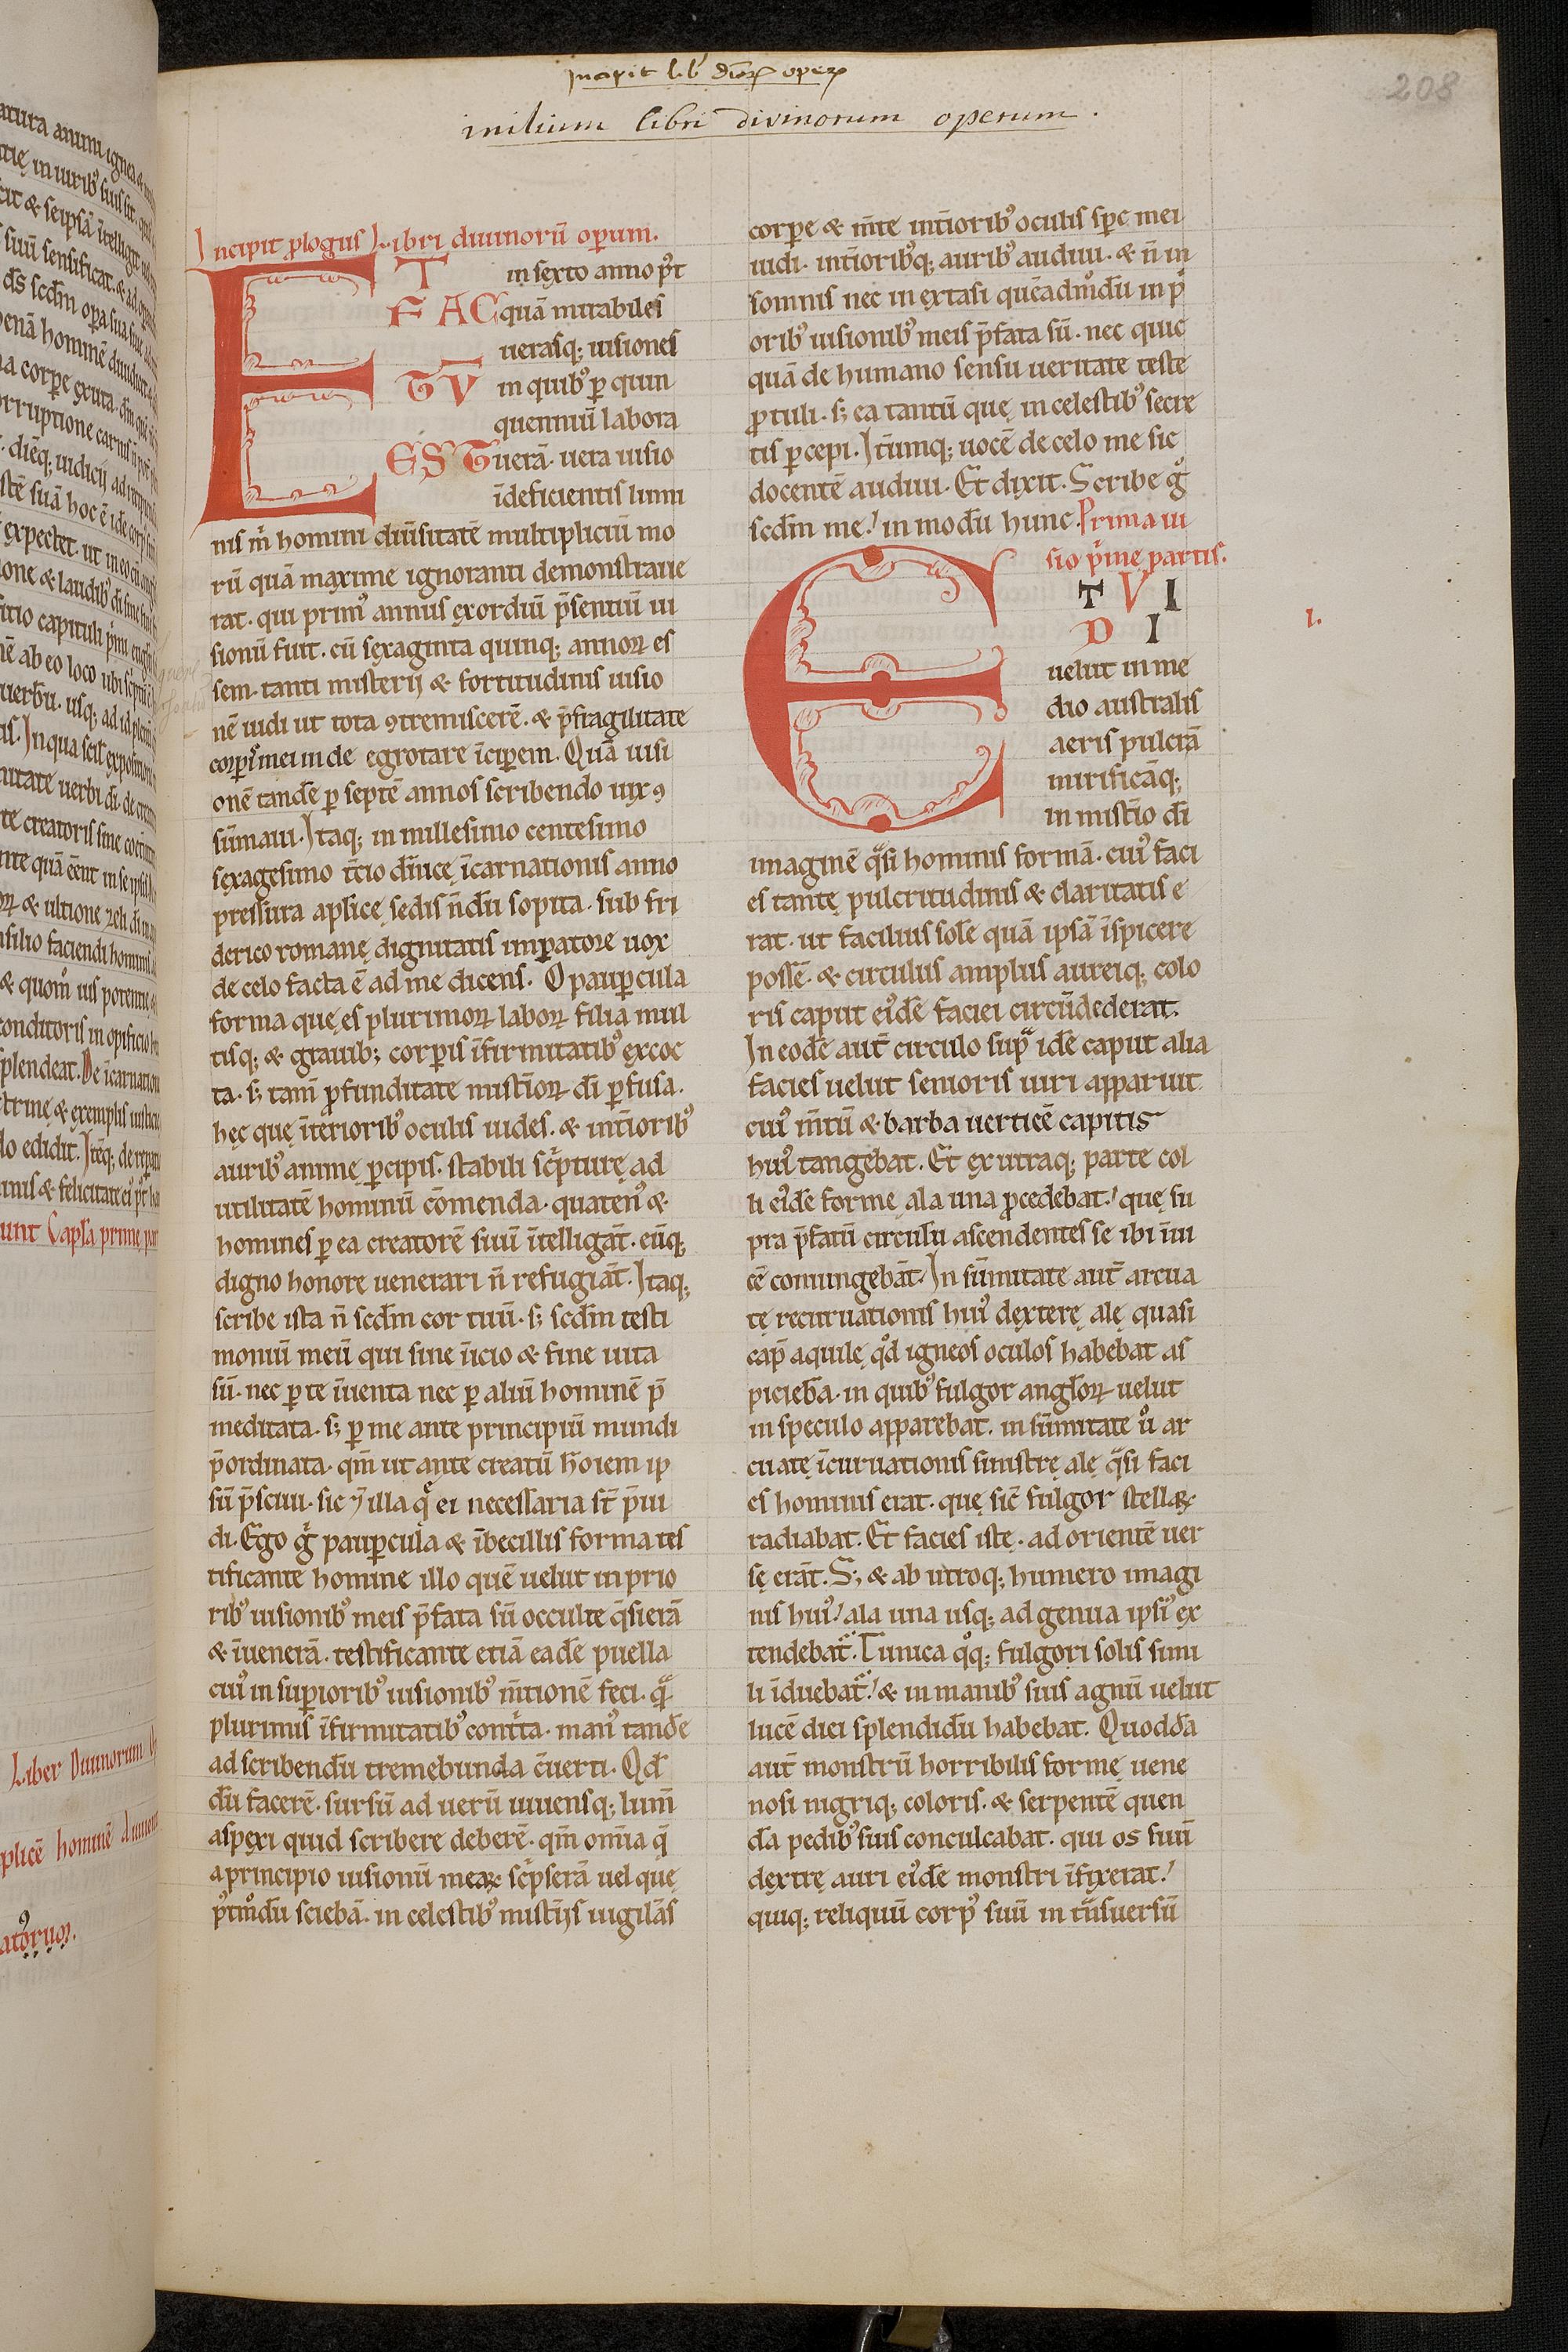 Incipit lib' diuoꝝ opeꝝ
initium libri divinorum operum.
208
Incipit ꝓlogus Libri diuinorū oꝑum.
ET in sexto anno pᷤt
FAC quā mirabiles
uerasq; uisiones
TV in quib᾽ ꝑ quin
quenniū labora
EST uerā. uera uisio
īdeficientis lumi
nis m̄ homini diūsitatē multipliciū mo
rū quā maxime ignoranti demonstraue
rat. qui prim᾽ annus exordiū p̄sentiū ui
sionū fuit. cū sexaginta quinq; annoꝝ es
sem. tanti misterij & fortitudinis uisio
nē uidi ut tota ꝯtremiscerē. & p̄ fragilitate
corꝑis mei inde egrotare īciꝑem. Quā uisi
onē tandē ꝑ septē annos scribendo uix ꝯ
sūmaui. Itaq; in millesimo centesimo
sexagesimo t̄cio dn̄icę īcarnationis anno
pressura aplicę sedis n̄dū sopita. sub fri
derico romanę dignitatis imꝑatore uox
de celo facta ē ad me dicens. O pauꝑcula
forma que es plurimoꝝ laboꝝ filia mul
tisq; & grauib; corꝑis īfirmitatib᾽ excoc
ta. s; tam̄ ꝓfunditate mist̄ioꝝ dī ꝑfusa.
hęc que īterioribꝰ oculis uides. & int̄iorib᾽
aurib᾽ animę ꝑcipis. stabili scpturę ad
utilitatē hominū cōmenda. quaten᾽ &
homines ꝑ ea creatorē suū ītelligāt. eūq;
digno honore uenerari n̄ refugiāt. Itaq;
scribe ista n̄ scdm cor tuū. s; scdm testi
moniū meū qui sine īicio & fine uita
sū. nec ꝑ te īuenta nec ꝑ aliū hominē p̄
meditata. s; ꝑ me ante principiū mundi
p̄ordinata. qm̄ ut ante creatū hoīem ip
sū p̄sciui. sic ⁊ illa q̄ ei necessaria st̄ p̄ui
di. Ego g͛ pauꝑcula & ībecillis forma tes
tificante homine illo quē uelut in prio
rib᾽ uisionib᾽ meis p̄fata sū occulte q̄sierā
& īuenerā. testificante etiā eadē puella
cui᾽ in suꝑiorib᾽ uisionib᾽ m̄tionē feci. qᷓ
plurimis īfirmitatib᾽ contͥta. man᾽ tandē
ad scribendū tremebunda c̄uerti. Qd
dū facerē. sursū ad uerū uiuensq; lum̄
aspexi quid scribere deberē. qm̄ omīa q̄
a principio uisionū meaꝝ scͥpserā uel que
p᾽tmͦdū sciebā. in celestib᾽ mist̄ijs uigilās
corꝑe & m̄te int̄iorib᾽ oculis sp̄c mei
uidi. int̄iorib᾽q; aurib᾽ audiui. & n̄ in
somnis nec in extasi quēadmͦdū in pͥ
orib᾽ uisionib᾽ meis p̄fata sū. nec quic
quā de humano sensu ueritate teste
ꝓtuli. s; ea tantū que in celestib᾽ secre
tis ꝑcepi. It̄umq; uocē de celo me sic
docentē audiui. Et dixit. Scribe g͛
scdm me! in modū hunc. Prima ui
sio pͥme partis.
ET VI
DI
1.
uelut in me
dio australis
aeris pulcrā
mirificāq;
in mist̄io dī
imaginē qᷓsi hominis formā. cui᾽ faci
es tantę pulcritudinis & claritatis e
rat. ut facilius sole quā ipsā īspicere
possē. & circulus amplus aureiq; colo
ris caput ei᾽dē faciei circūdederat.
In eodē aut̄ circulo supᷓ idē caput alia
facies uelut senioris uiri apparuit
cui᾽ m̄tū & barba uerticē capitis
hui᾽ tangebat. Et ex utraq; parte col
li ei᾽dē formę ala una ꝓcedebat.! quę su
pra p̄fatū circulū ascendentes se ibi īui
cē coniungebāt. In sūmitate aut̄ arcua
tę recuruationis hui᾽ dexterę alę quasi
cap̄ aquilę qͦd igneos oculos habebat as
picieb̄a. in quib᾽ fulgor angl̄oꝝ uelut
in speculo apparebat. in sūmitate uͦ ar
cuatę īcuruationis sinistrę alę qᷓsi faci
es hominis erat. quę sic̄ fulgor stellaꝝ
radiabat. Et facies istę. ad orientē uer
sę erāt. S; & ab utroq; humero imagi
nis hui᾽! ala una usq; ad genua ipsi᾽ ex
tendebat᷑. Tunica qͦq; fulgori solis simi
li īduebat᷑! & in manib᾽ suis agnū uelut
lucē diei splendidū habebat. Quoddā
aut̄ monstrū horribilis formę uene
nosi nigriq; coloris. & serpentē quen
dā pedib᾽ suis conculcabat. qui os suū
dextrę auri ei᾽dē monstri īfixerat!
quiq; reliquū corp᾽ suū in tͣnsuersū